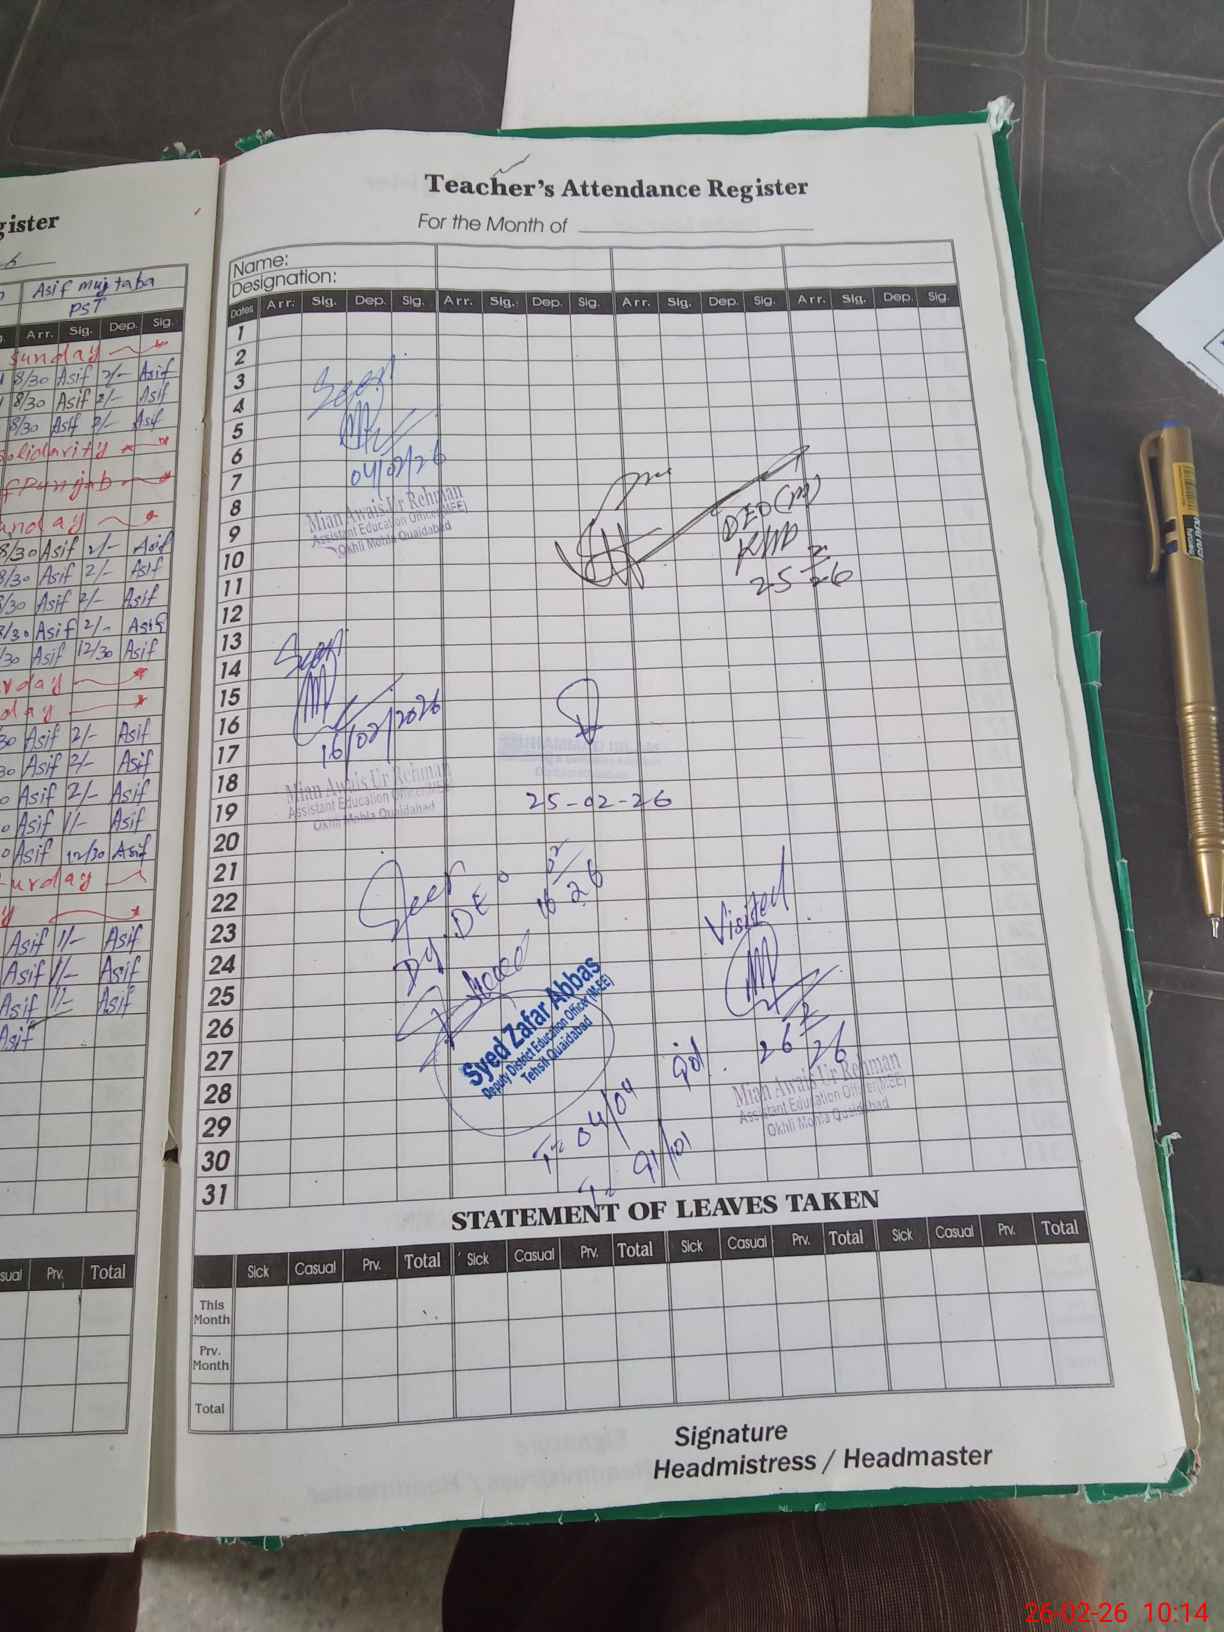 gister
Asif mujtaba
PST
Arr. Sig. Dep. Sig.
Sunday
8/30 Asif 2/- Asif
8/30 Asif 2/- Asif
8/30 Asif 2/- Asif
olidarity
f Punjab
unday
8/30 Asif 2/- Asif
8/30 Asif 2/- Asif
8/30 Asif 2/- Asif
8/30 Asif 2/- Asif
/30 Asif 12/30 Asif
rday
day
30 Asif 2/- Asif
30 Asif 2/- Asif
0 Asif 2/- Asif
0 Asif 1/- Asif
0 Asif 12/30 Asif
urday
y
Asif 1/- Asif
Asif 1/- Asif
Asif 1/- Asif
Asif
sual Prv. Total
Teacher's Attendance Register
For the Month of
Name:
Designation:
Dates Arr. Sig. Dep. Sig. Arr. Sig. Dep. Sig. Arr. Sig. Dep. Sig. Arr. Sig. Dep. Sig.
1
2
3
4
5
6
7
8
9
10
11
12
13
14
15
16
17
18
19
20
21
22
23
24
25
26
27
28
29
30
31
Seen
04/02/26
Mian Awais Ur Rehman
Assistant Education Officer(MEE)
Okhli Mohla Quaidabad
DEO(M)
KHB
25 2/26
Seen
16/02/2026
Mian Awais Ur Rehman
Assistant Education Officer(MEE)
Okhli Mohla Quaidabad
25-02-26
Seen
Dy. DEO
16 2/26
Syed Zafar Abbas
Deputy District Education Officer (M-EE)
Tehsil Quaidabad
Visited
26 2/26
Mian Awais Ur Rehman
Assistant Education Officer(MEE)
Okhli Mohla Quaidabad
T= 04/04
T= 91/101
STATEMENT OF LEAVES TAKEN
Sick Casual Prv. Total Sick Casual Prv. Total Sick Casual Prv. Total Sick Casual Prv. Total
This Month
Prv. Month
Total
Signature
Headmistress / Headmaster
26-02-26 10:14